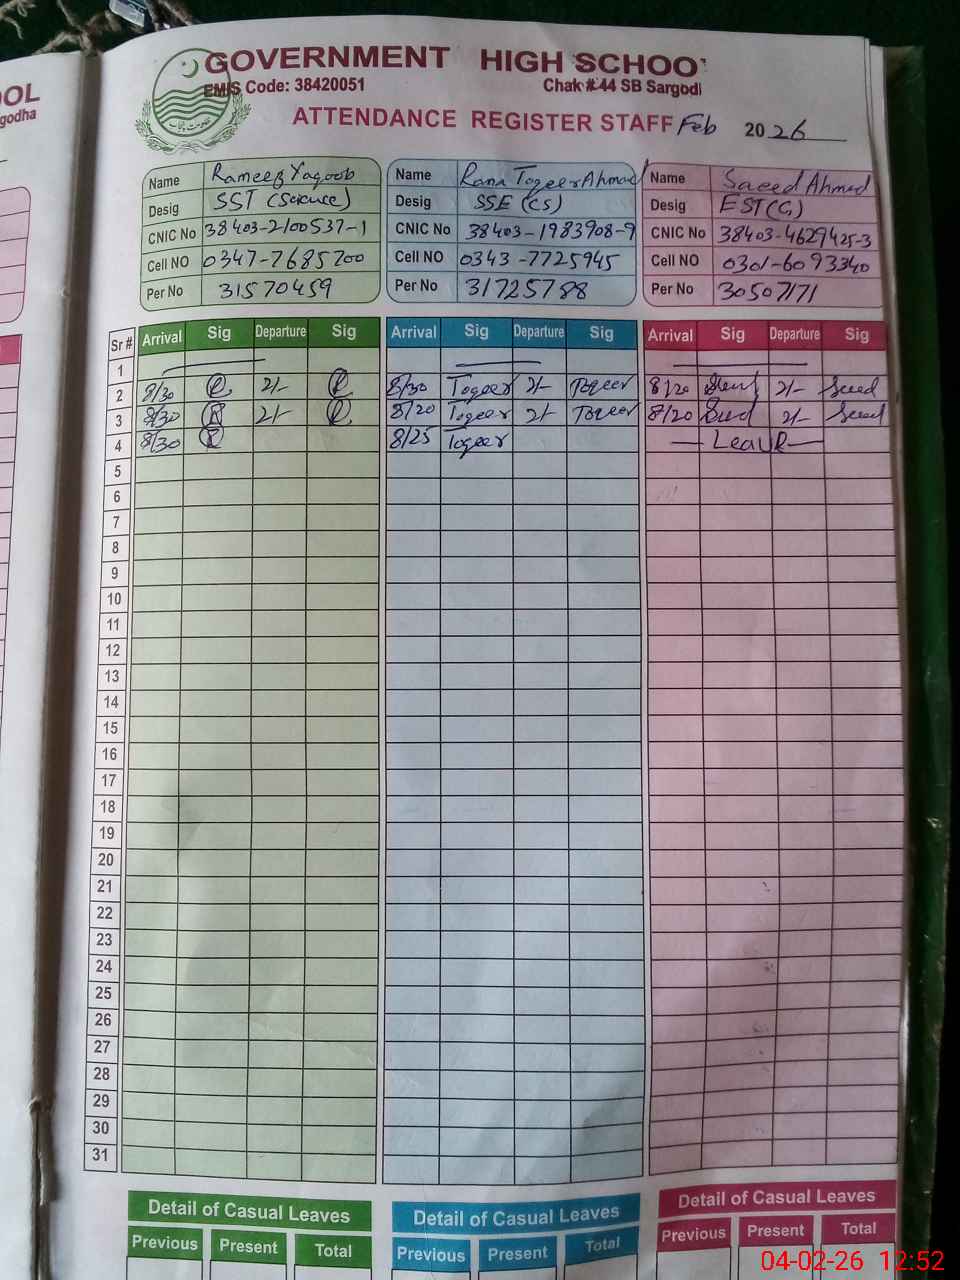 OOL
godha
GOVERNMENT HIGH SCHOO
EMIS Code: 38420051 Chak # 44 SB Sargod
ATTENDANCE REGISTER STAFF Feb 2026
Name Rameez Yaqoob Name Rana Toqeer Ahmad Name Saeed Ahmad
Desig SST (Science) Desig SSE (CS) Desig EST (G)
CNIC No 38403-2100537-1 CNIC No 38403-1983908-9 CNIC No 38403-4629425-3
Cell NO 0347-7685700 Cell NO 0343-7725945 Cell NO 0301-6093340
Per No 31570459 Per No 31725788 Per No 30507171
Sr # Arrival Sig Departure Sig Arrival Sig Departure Sig Arrival Sig Departure Sig
1
2 8/30 2/- 8/30 Toqeer 2/- Toqeer 8/20 2/- Saeed
3 8/30 2/- 8/20 Toqeer 2/- Toqeer 8/20 Saeed 2/- Saeed
4 8/30 8/25 Toqeer Leave
5
6
7
8
9
10
11
12
13
14
15
16
17
18
19
20
21
22
23
24
25
26
27
28
29
30
31
Detail of Casual Leaves Detail of Casual Leaves Detail of Casual Leaves
Previous Present Total Previous Present Total Previous Present Total
04-02-26 12:52